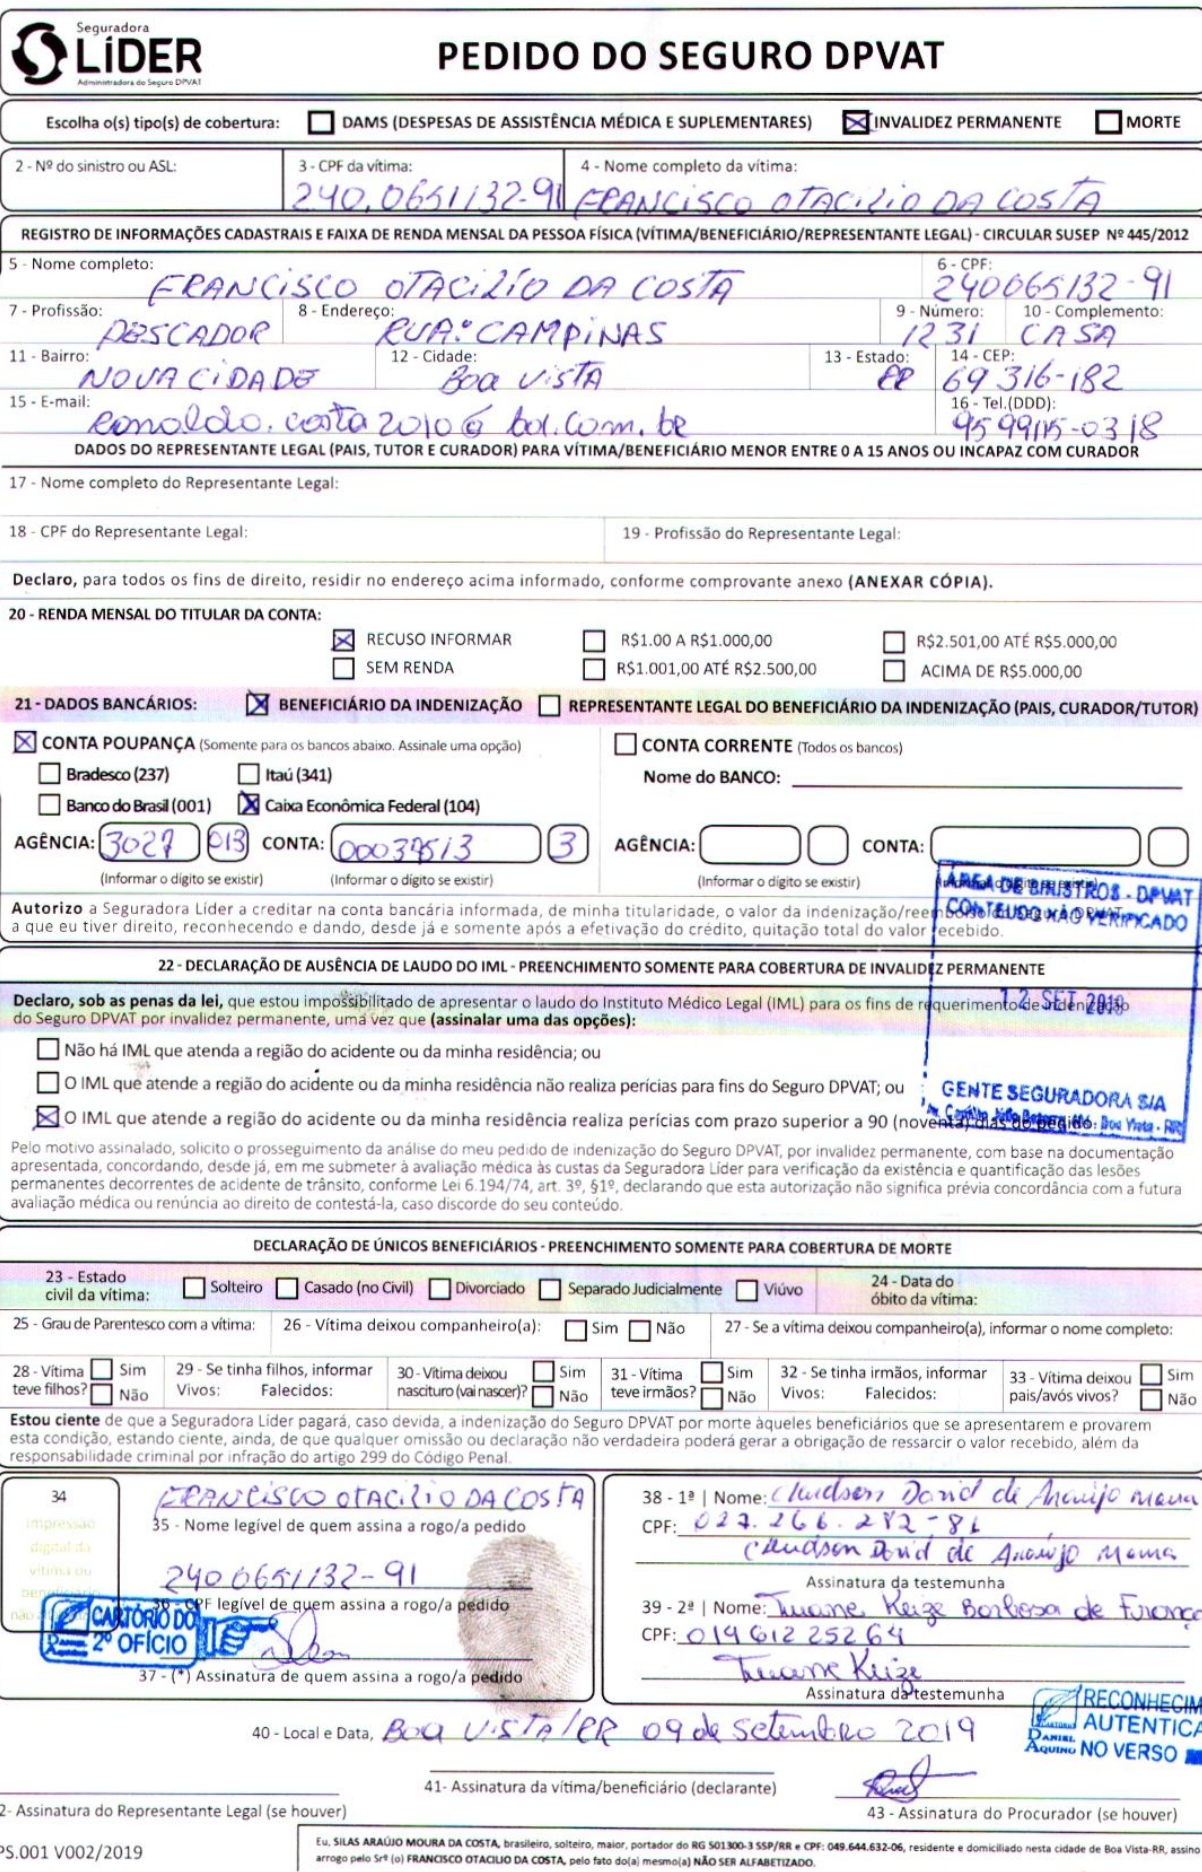 Seguradora
LÍDER
Administradora do Seguro DPVAT
PEDIDO DO SEGURO DPVAT
Escolha o(s) tipo(s) de cobertura: DAMS (DESPESAS DE ASSISTÊNCIA MÉDICA E SUPLEMENTARES) INVALIDEZ PERMANENTE MORTE
2 - Nº do sinistro ou ASL: 3 - CPF da vítima: 4 - Nome completo da vítima:
240.0651132-91 FRANCISCO OTACILIO DA COSTA
REGISTRO DE INFORMAÇÕES CADASTRAIS E FAIXA DE RENDA MENSAL DA PESSOA FÍSICA (VÍTIMA/BENEFICIÁRIO/REPRESENTANTE LEGAL) - CIRCULAR SUSEP Nº 445/2012
5 - Nome completo: 6 - CPF:
FRANCISCO OTACILIO DA COSTA 240065132-91
7 - Profissão: 8 - Endereço: 9 - Número: 10 - Complemento:
PESCADOR RUA: CAMPINAS 1231 CASA
11 - Bairro: 12 - Cidade: 13 - Estado: 14 - CEP:
NOVA CIDADE Boa VISTA RR 69 316-182
15 - E-mail: 16 - Tel.(DDD):
Ronaldo.costa2010@bol.com.br 95 99115-0318
DADOS DO REPRESENTANTE LEGAL (PAIS, TUTOR E CURADOR) PARA VÍTIMA/BENEFICIÁRIO MENOR ENTRE 0 A 15 ANOS OU INCAPAZ COM CURADOR
17 - Nome completo do Representante Legal:
18 - CPF do Representante Legal: 19 - Profissão do Representante Legal:
Declaro, para todos os fins de direito, residir no endereço acima informado, conforme comprovante anexo (ANEXAR CÓPIA).
20 - RENDA MENSAL DO TITULAR DA CONTA:
RECUSO INFORMAR R$1.00 A R$1.000,00 R$2.501,00 ATÉ R$5.000,00
SEM RENDA R$1.001,00 ATÉ R$2.500,00 ACIMA DE R$5.000,00
21 - DADOS BANCÁRIOS: BENEFICIÁRIO DA INDENIZAÇÃO REPRESENTANTE LEGAL DO BENEFICIÁRIO DA INDENIZAÇÃO (PAIS, CURADOR/TUTOR)
CONTA POUPANÇA (Somente para os bancos abaixo. Assinale uma opção) CONTA CORRENTE (Todos os bancos)
Bradesco (237) Itaú (341) Nome do BANCO:
Banco do Brasil (001) Caixa Econômica Federal (104)
AGÊNCIA: 3027 013 CONTA: 3 AGÊNCIA: CONTA:
(Informar o dígito se existir) (Informar o dígito se existir) (Informar o dígito se existir) (Informar o dígito se existir)
ÁREA DE SINISTROS - DPVAT
CONTEUDO NÃO VERIFICADO
Autorizo a Seguradora Líder a creditar na conta bancária informada, de minha titularidade, o valor da indenização/reembolso do Seguro DPVAT
a que eu tiver direito, reconhecendo e dando, desde já e somente após a efetivação do crédito, quitação total do valor recebido.
22 - DECLARAÇÃO DE AUSÊNCIA DE LAUDO DO IML - PREENCHIMENTO SOMENTE PARA COBERTURA DE INVALIDEZ PERMANENTE
Declaro, sob as penas da lei, que estou impossibilitado de apresentar o laudo do Instituto Médico Legal (IML) para os fins de requerimento de indenização
12 SET 2019
do Seguro DPVAT por invalidez permanente, uma vez que (assinalar uma das opções):
Não há IML que atenda a região do acidente ou da minha residência; ou
O IML que atende a região do acidente ou da minha residência não realiza perícias para fins do Seguro DPVAT; ou
GENTE SEGURADORA S/A
O IML que atende a região do acidente ou da minha residência realiza perícias com prazo superior a 90 (noventa) dias do pedido.
Boa Vista - RR
Pelo motivo assinalado, solicito o prosseguimento da análise do meu pedido de indenização do Seguro DPVAT, por invalidez permanente, com base na documentação
apresentada, concordando, desde já, em me submeter à avaliação médica às custas da Seguradora Líder para verificação da existência e quantificação das lesões
permanentes decorrentes de acidente de trânsito, conforme Lei 6.194/74, art. 3º, §1º, declarando que esta autorização não significa prévia concordância com a futura
avaliação médica ou renúncia ao direito de contestá-la, caso discorde do seu conteúdo.
DECLARAÇÃO DE ÚNICOS BENEFICIÁRIOS - PREENCHIMENTO SOMENTE PARA COBERTURA DE MORTE
23 - Estado civil da vítima: Solteiro Casado (no Civil) Divorciado Separado Judicialmente Viúvo 24 - Data do óbito da vítima:
25 - Grau de Parentesco com a vítima: 26 - Vítima deixou companheiro(a): Sim Não 27 - Se a vítima deixou companheiro(a), informar o nome completo:
28 - Vítima teve filhos? Sim Não 29 - Se tinha filhos, informar Vivos: Falecidos: 30 - Vítima deixou nascituro (vai nascer)? Sim Não 31 - Vítima teve irmãos? Sim Não 32 - Se tinha irmãos, informar Vivos: Falecidos: 33 - Vítima deixou pais/avós vivos? Sim Não
Estou ciente de que a Seguradora Líder pagará, caso devida, a indenização do Seguro DPVAT por morte àqueles beneficiários que se apresentarem e provarem
esta condição, estando ciente, ainda, de que qualquer omissão ou declaração não verdadeira poderá gerar a obrigação de ressarcir o valor recebido, além da
responsabilidade criminal por infração do artigo 299 do Código Penal.
34
impressão
digital da
vítima ou
beneficiário
FRANCISCO OTACILIO DA COSTA
35 - Nome legível de quem assina a rogo/a pedido
2400651132-91
36 - CPF legível de quem assina a rogo/a pedido
CARTÓRIO DO
2º OFÍCIO
37 - (*) Assinatura de quem assina a rogo/a pedido
38 - 1ª | Nome: Cleudson David de Araujo
CPF: 027.266.282-86
Cleudson David de Araujo
Assinatura da testemunha
39 - 2ª | Nome: Tuane Keize Barbosa de
CPF: 01961225264
Tuane Keize
Assinatura da testemunha
RECONHECIM
AUTENTICA
NO VERSO
DANIEL
AQUINO
40 - Local e Data, Boa VISTA/RR 09 de setembro 2019
41- Assinatura da vítima/beneficiário (declarante)
2- Assinatura do Representante Legal (se houver) 43 - Assinatura do Procurador (se houver)
PS.001 V002/2019
Eu, SILAS ARAÚJO MOURA DA COSTA, brasileiro, solteiro, maior, portador do RG 501300-3 SSP/RR e CPF: 049.644.632-06, residente e domiciliado nesta cidade de Boa Vista-RR, assin
arrogo pelo Srº (o) FRANCISCO OTACILIO DA COSTA, pelo fato do(a) mesmo(a) NÃO SER ALFABETIZADO.